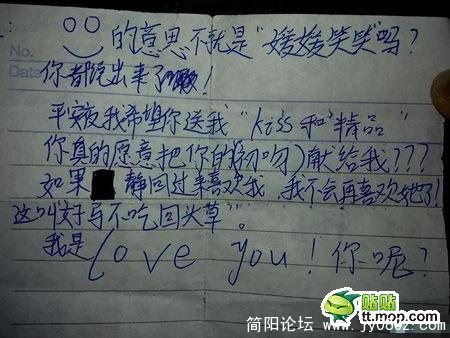 No.
的意思不就是"媛媛笑笑"吗?
Date
你都说出来了!
平安夜我希望你送我"kiss和精品"
你真的愿意把你的初吻献给我???
如果 静回过来喜欢我,我不会再喜欢她了!
这叫好马不吃回头草"。
我是love you!你呢?
贴贴
tt.mop.com
简阳论坛 www.jy0832.com